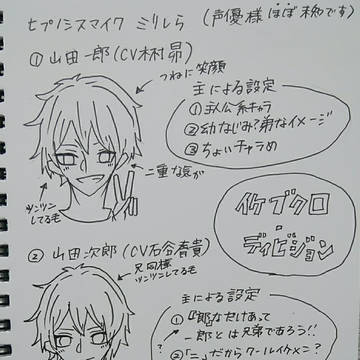 ヒプノシスマイク ミリしら (声優様ほぼ未知です)
① 山田一郎(CV木村昴)
つねに笑顔
主による設定
① 主人公系キャラ
② 幼なじみ?弟なイメージ
③ ちょいチャラめ
二重な気が
ツンツンしてる毛
イケブクロ
・
ディビジョン
② 山田次郎(CV石谷春貴)
兄同様
ツンツンしてる毛
主による設定
① "郎"なだけあって
一郎とは兄弟であろう!!
② 「二」だからクールイケメン?